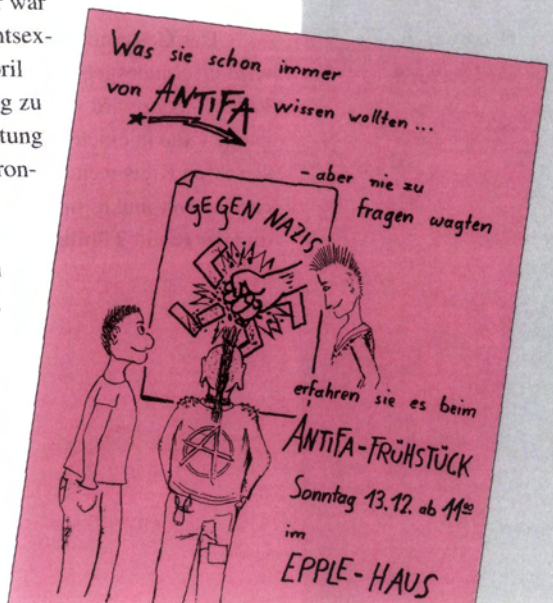 war
ntsex-
ril
g zu
tung
ron-
Was sie schon immer
von ANTIFA wissen wollten ...
- aber nie zu
fragen wagten
GEGEN NAZIS
erfahren sie es beim
ANTIFA-FRÜHSTÜCK
Sonntag 13.12. ab 11⁰⁰
im
EPPLE-HAUS